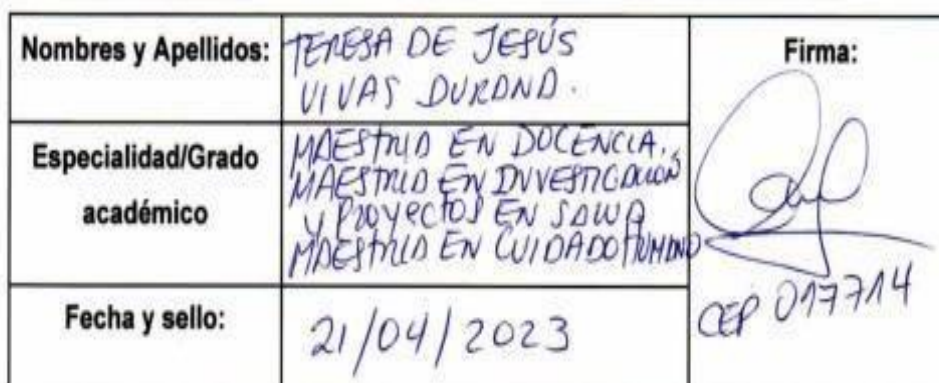 Nombres y Apellidos:
TERESA DE JESÚS
VIVAS DURAND.
Firma:
Especialidad/Grado
académico
MAESTRIA EN DOCENCIA,
MAESTRIA EN INVESTIGACION
Y PROYECTOS EN SALUD
MAESTRIA EN CUIDADO HUMANO
CEP 017714
Fecha y sello:
21/04/2023